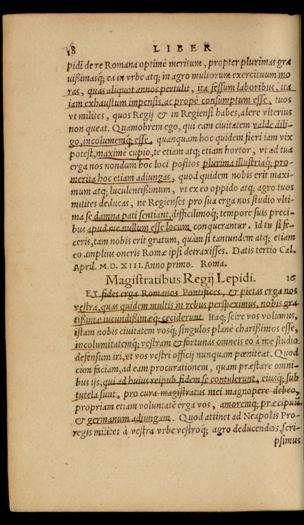 18 LIBER
pidi de re Romana optimè meritum, propter plurimas gra
uißimasq́; ea in vrbe atq; in agro multorum exercituum mo
ras, quas aliquot annos pertulit, ita feßum laboribus, ita
iam exhaustum impensis, ac propè consumptum esse, tuos
vt milites, quos Regij & in Regiensi habes, alere vlterius
non queat. Quamobrem ego, qui eam ciuitatem valde dili-
go, incolumemq́; esse, quanquam hoc quidem fieri iam vix
potest, maximè cupio, te etiam atq; etiam hortor, vt ad tua
erga nos nondum hoc loci positos plurima illustriaq́; pro-
merita hoc etiam adiungas, quod quidem nobis erit maxi-
mum atq; luculentißimum, vt ex eo oppido atq; agro tuos
milites deducas, ne Regienses pro sua erga nos studio vlti-
ma se damna pati sentiant, difficilimoq́; tempore suis preci-
bus apud me nullum esse locum conquerantur. Id tu si fe-
ceris, tam nobis erit gratum, quàm si tantundem atq; etiam
eo amplius oneris Romæ ipsi detraxisses. Datis tertio Cal.
April. M.D.XIII. Anno primo. Roma.
Magistratibus Regij Lepidi. 16
Et fides erga Romanos Pontifices, & pietas erga nos
vestra, quas quidem multis in rebus perspeximus, nobis gra
tißimæ iucundißimæq́; acciderunt. Itaq; scire vos volumus,
istam nobis ciuitatem vosq́; singulos planè charißimos esse,
incolumitatemq́; vestram & fortunas omneis eo à me studio
defensum iri, vt vos vestri officij nunquam pœniteat. Quod
cum faciam, ad eam procurationem, quam præstare omni-
bus ijs, qui ad huius reipub. fidem se contulerunt, eiusq́; sub
tutela sunt, pro cura magistratus mei magnopere debeo,
propriam etiam voluntatē erga vos, amoremq́; præcipuū
& germanum adiungam. Quod attinet ad Neapolis Pro-
regis milites à vestra vrbe vestroq́; agro deducendos, scri-
psimus